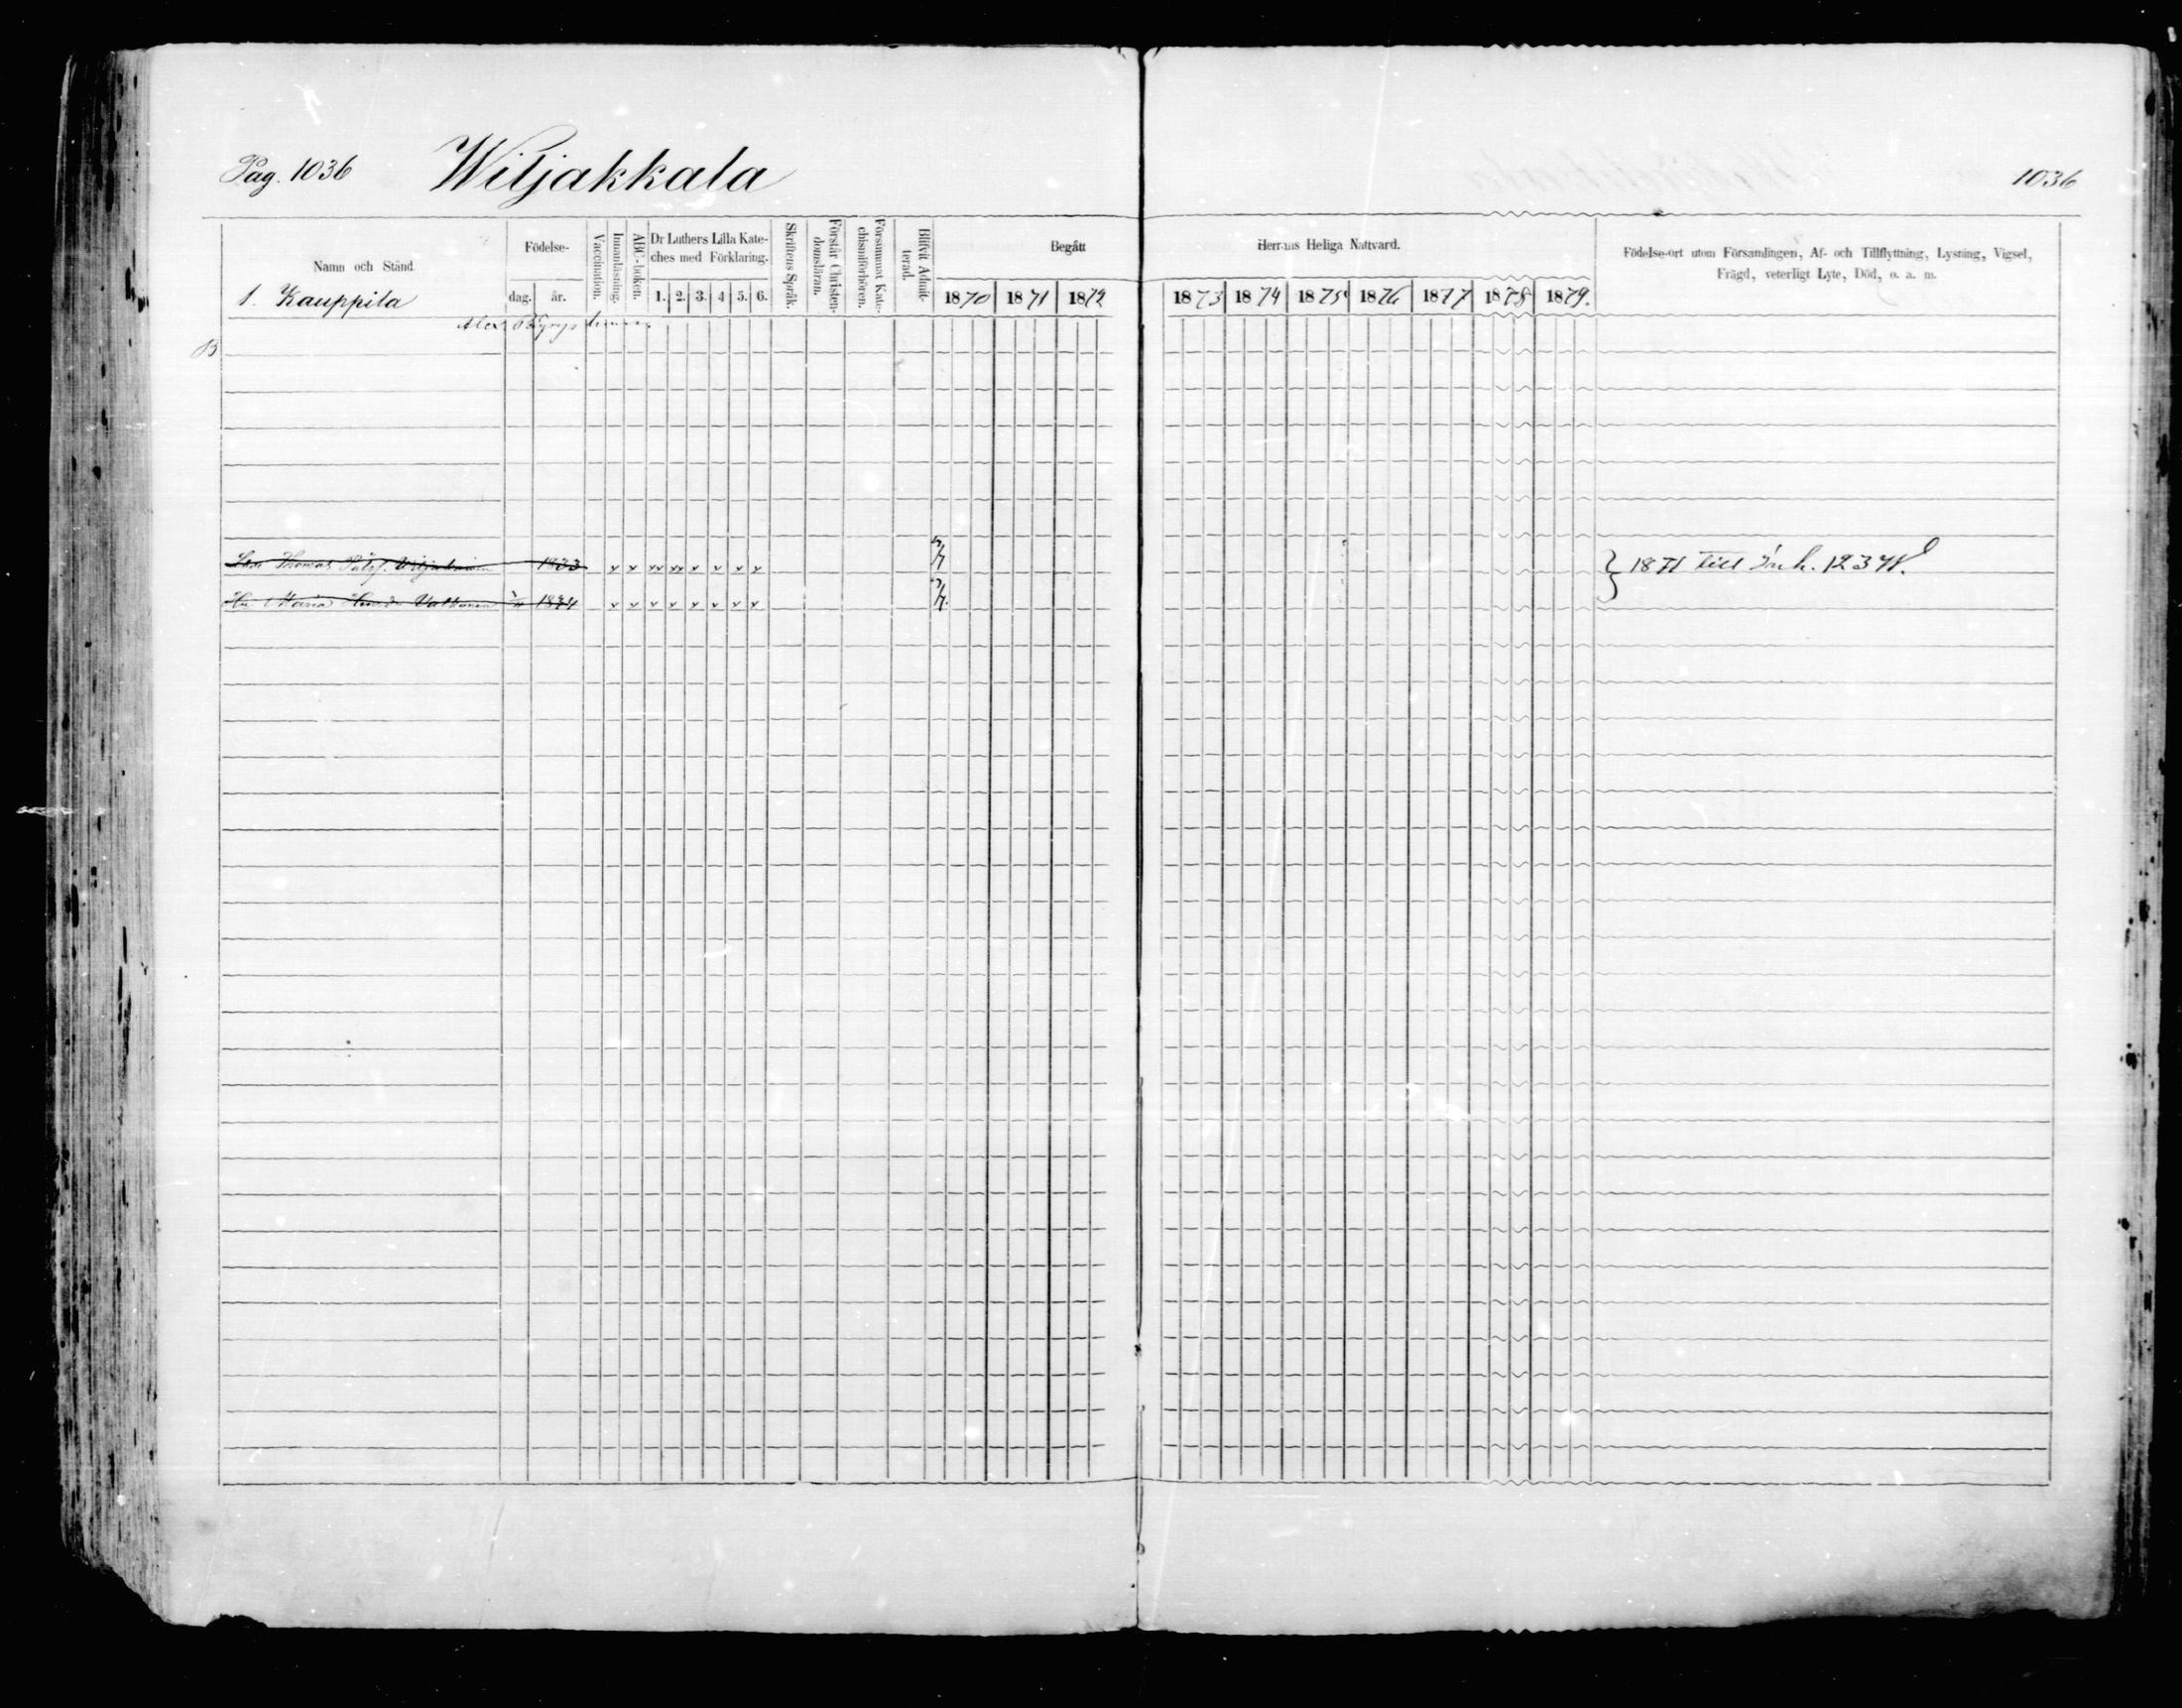 Pag. 1036 Wiljakkala 1036
Namn och Stånd.
Födelse-
dag. år.
Vaccination.
Innanläsning.
ABC-boken.
Dr Luthers Lilla Kate-
ches med Förklaring.
1. 2. 3. 4 5. 6.
Skriftens Språk.
Förstår Christen-
domsläran.
Försummat Kate-
chismiförhören.
Blifvit Admit-
terad.
Begått Herrans Heliga Nattvard.
1870 1871 1872 1873 1874 1875 1876 1877 1878 1879.
Födelse-ort utom Församlingen, Af- och Tillflyttning, Lysning, Vigsel,
Frägd, veterligt Lyte, Död, o. a. m.
1. Kauppila
Alex
B
Thomas 1833 v v vv vv v v v v
1871 till Inh. 1237
Hu Maria 1834 v v v v v v v v